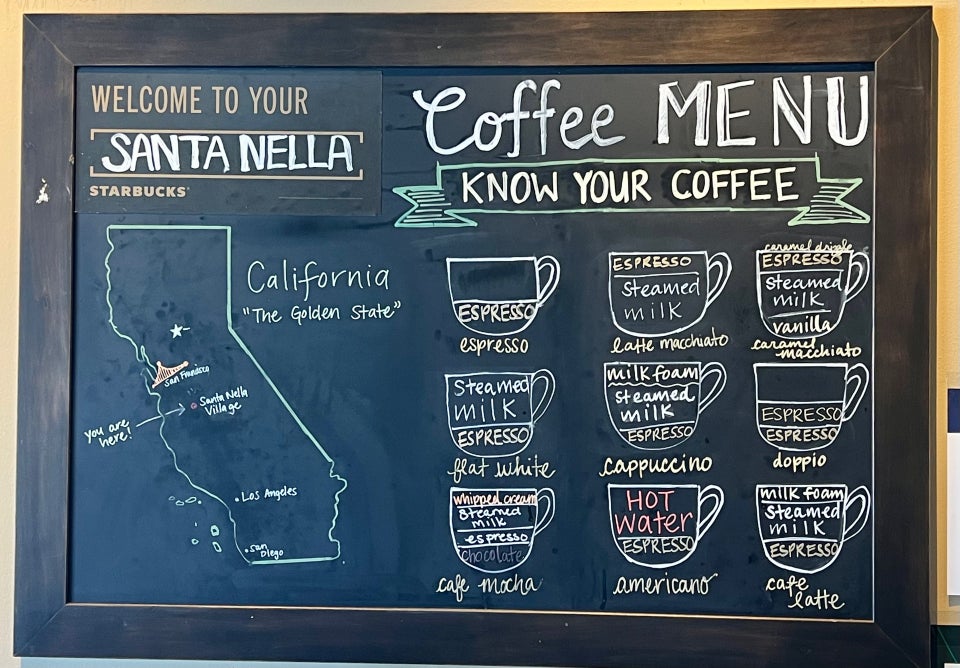 WELCOME TO YOUR
SANTA NELLA
STARBUCKS
Coffee MENU
KNOW YOUR COFFEE
California
"The Golden State"
San Francisco
Santa Nella
Village
you are
here!
Los Angeles
San
Diego
ESPRESSO
espresso
ESPRESSO
steamed
milk
latte macchiato
caramel drizzle
ESPRESSO
steamed
milk
vanilla
caramel
macchiato
Steamed
milk
ESPRESSO
flat white
milk foam
steamed
milk
ESPRESSO
cappuccino
ESPRESSO
ESPRESSO
doppio
whipped cream
Steamed
milk
espresso
chocolate
cafe mocha
HOT
water
ESPRESSO
americano
milk foam
Steamed
milk
ESPRESSO
cafe
latte